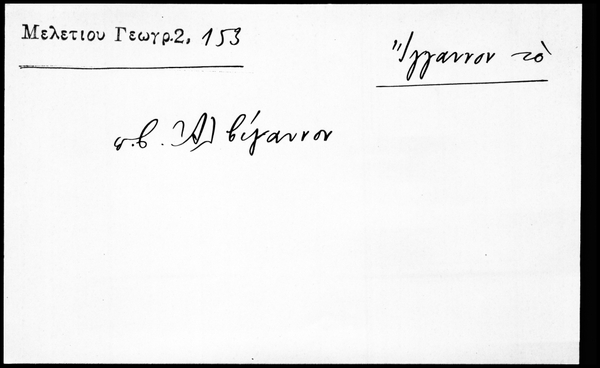 Μελετιου Γεωγρ.2, 153
Ἴγγαννον τὸ
σ.β. Ἀλβίγαννον